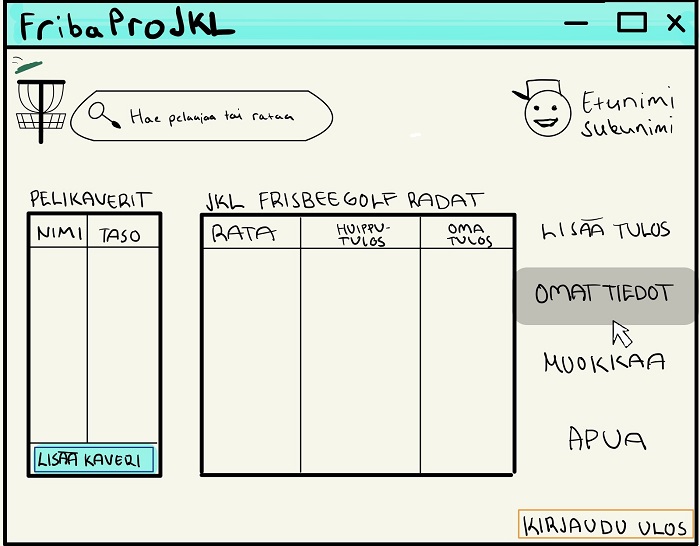 FribaProJKL
Hae pelaajaa tai rataa
Etunimi
Sukunimi
PELIKAVERIT
NIMI TASO
LISÄÄ KAVERI
JKL FRISBEEGOLF RADAT
RATA HUIPPU- OMA
TULOS TULOS
LISÄÄ TULOS
OMAT TIEDOT
MUOKKAA
APUA
KIRJAUDU ULOS